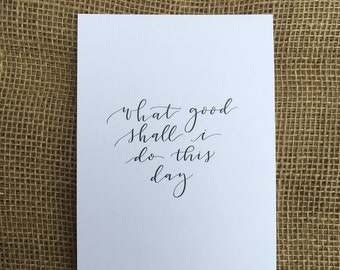 what good
shall i
do this
day